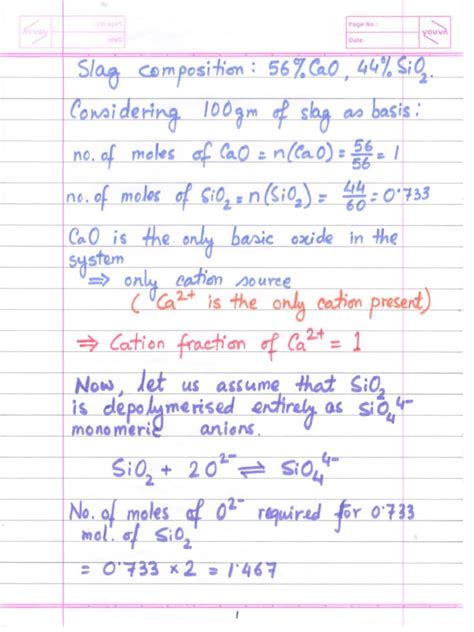 Page No.:
Date:
youva
Slag composition: 56% CaO, 44% SiO₂.
Considering 100gm of slag as basis:
no. of moles of CaO = n(CaO) = 56/56 = 1
no. of moles of SiO₂ = n(SiO₂) = 44/60 = 0.733
CaO is the only basic oxide in the
system
⇒ only cation source
(Ca²⁺ is the only cation present)
⇒ Cation fraction of Ca²⁺ = 1
Now, let us assume that SiO₂
is depolymerised entirely as SiO₄⁴⁻
monomeric anions.
SiO₂ + 2O²⁻ ⇌ SiO₄⁴⁻
No. of moles of O²⁻ required for 0.733
mol. of SiO₂
= 0.733 × 2 = 1.467
1